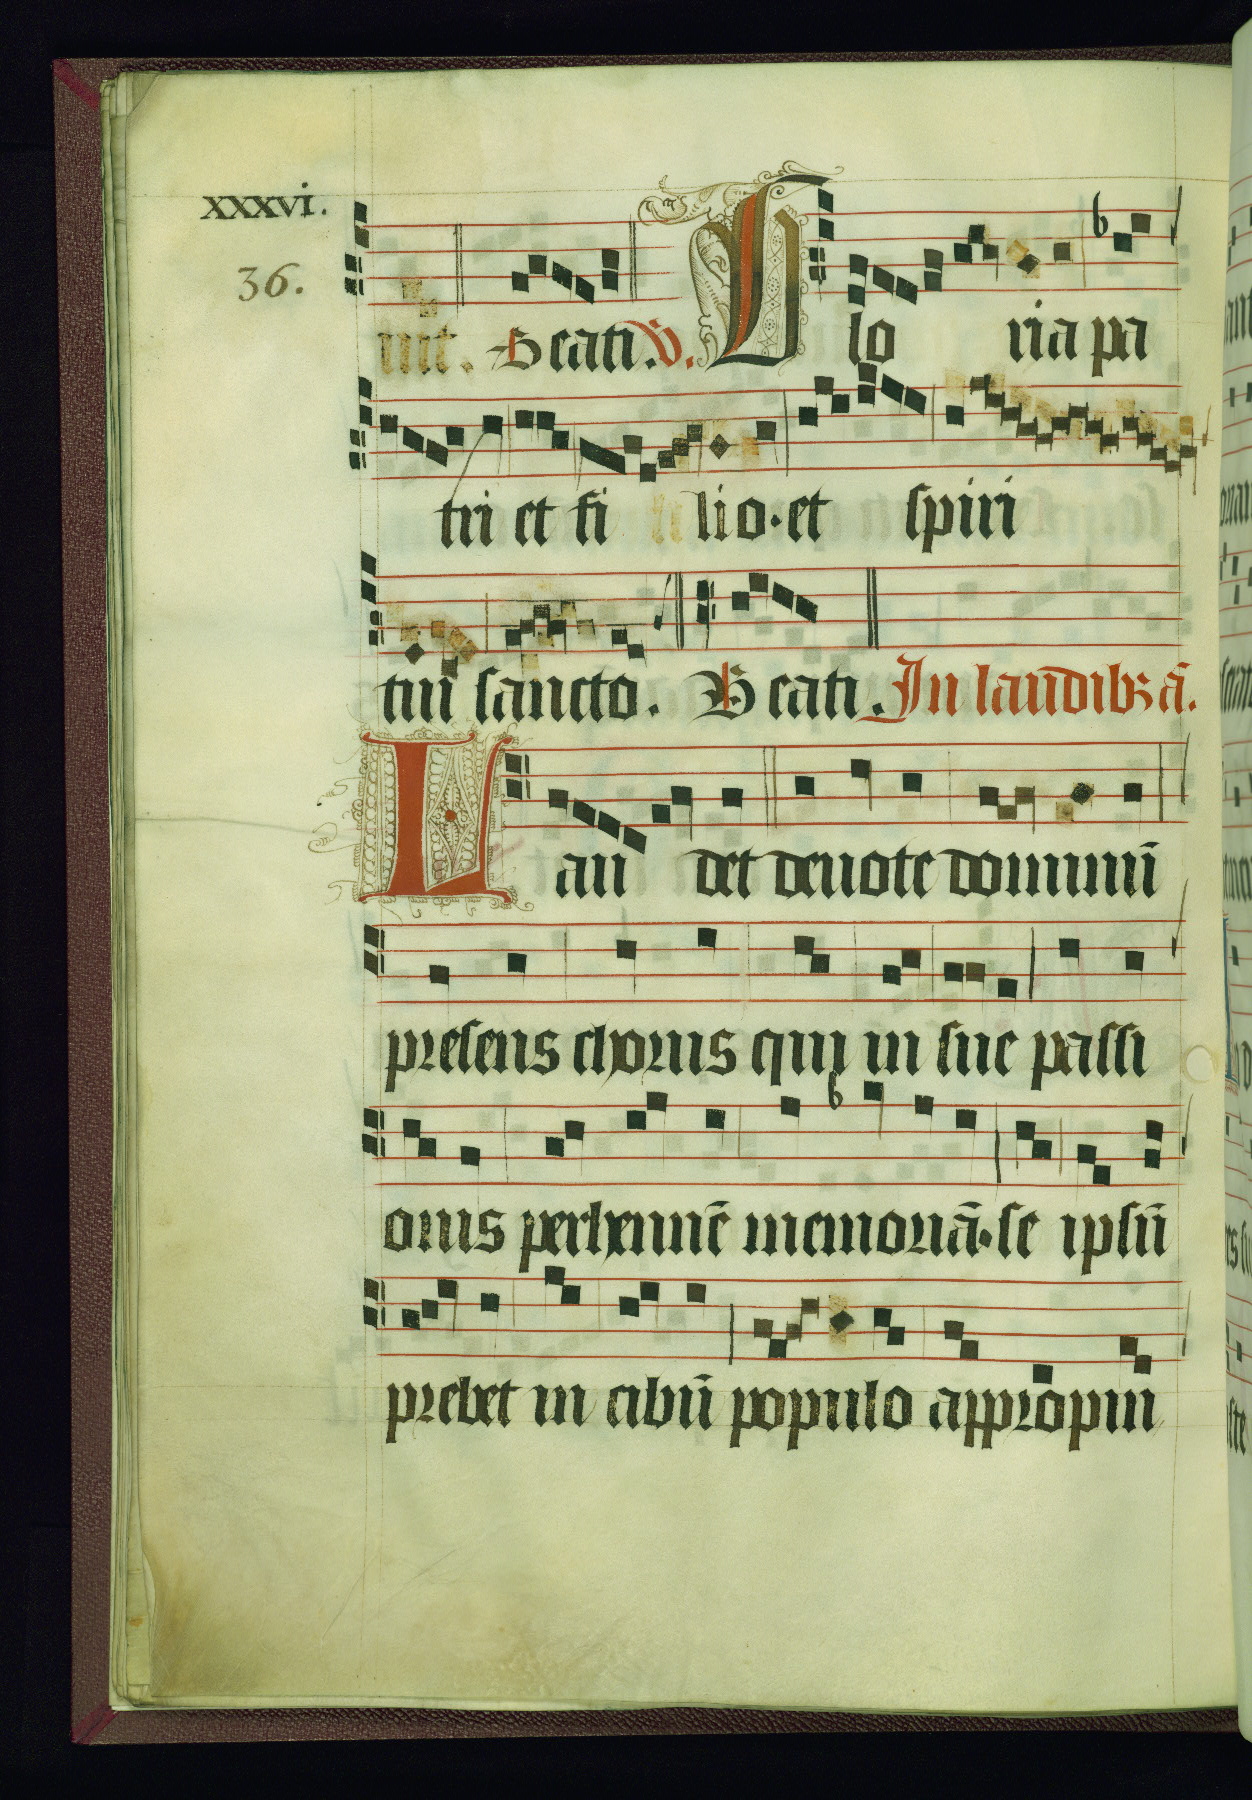 xxxvi.
36.
int. Beati. V. Glo ria pa
tri et fi lio. et spiri
tui sancto. Beati. In laudibꝫ añ.
Lau det deuote dominū
presens chorus qui in sue passi
onis perhennē memoriā. se ipsū
prebet in cibū populo appropin